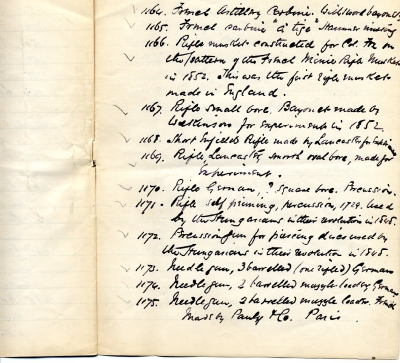 1164. French Artillery Carbine. With sword bayonet.
1165. French carbine "à tige" Hammer missing
1166. Rifle musket constructed for Col. on
the pattern of the French Minié Rifle Musket
in 1852. This was the first rifle musket
made in England.
1167. Rifle small bore. Bayonet made by
Wilkinson for experiments in 1852.
1168. Short Enfield Rifle made by Lancaster for
1169. Rifle, Lancaster, smooth oval bore, made for
experiment.
1170. Rifle German, ? square bore. Percussion.
1171. Rifle self priming, percussion, 1729. Used
by the Hungarians in their revolution in 1848.
1172. Percussion gun for piercing discs used by
the Hungarians in their revolution in 1848.
1173. Needle gun, 3 barrelled (one rifled) German
1174. Needle gun, 2 barrelled muzzle loader German
1175. Needle gun, 2 barrelled muzzle loader. French
Made by Pauly & Co. Paris